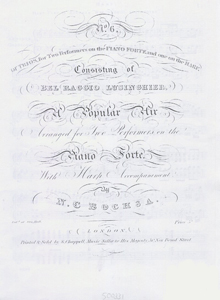 No. 6.
OF TRIOS, for Two Performers on the PIANO FORTE, and one on the HARP,
Consisting of
BEL RAGGIO LUSINGHIER,
A Popular Air
Arranged for Two Performers on the
Piano Forte,
With Harp Accompaniment
By
N. C. BOCHSA.
Price
LONDON
Printed & Sold by S. Chappell, Music Seller to His Majesty, 50, New Bond Street